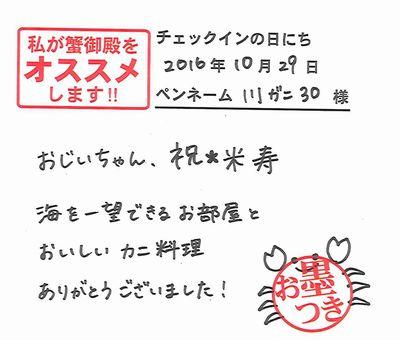 私が蟹御殿を
オススメ
します!!
チェックインの日にち
2016年10月29日
ペンネーム 川ガニ30 様
おじいちゃん、祝*米寿
海を一望できるお部屋と
おいしい カニ料理
ありがとうございました!
お墨つき